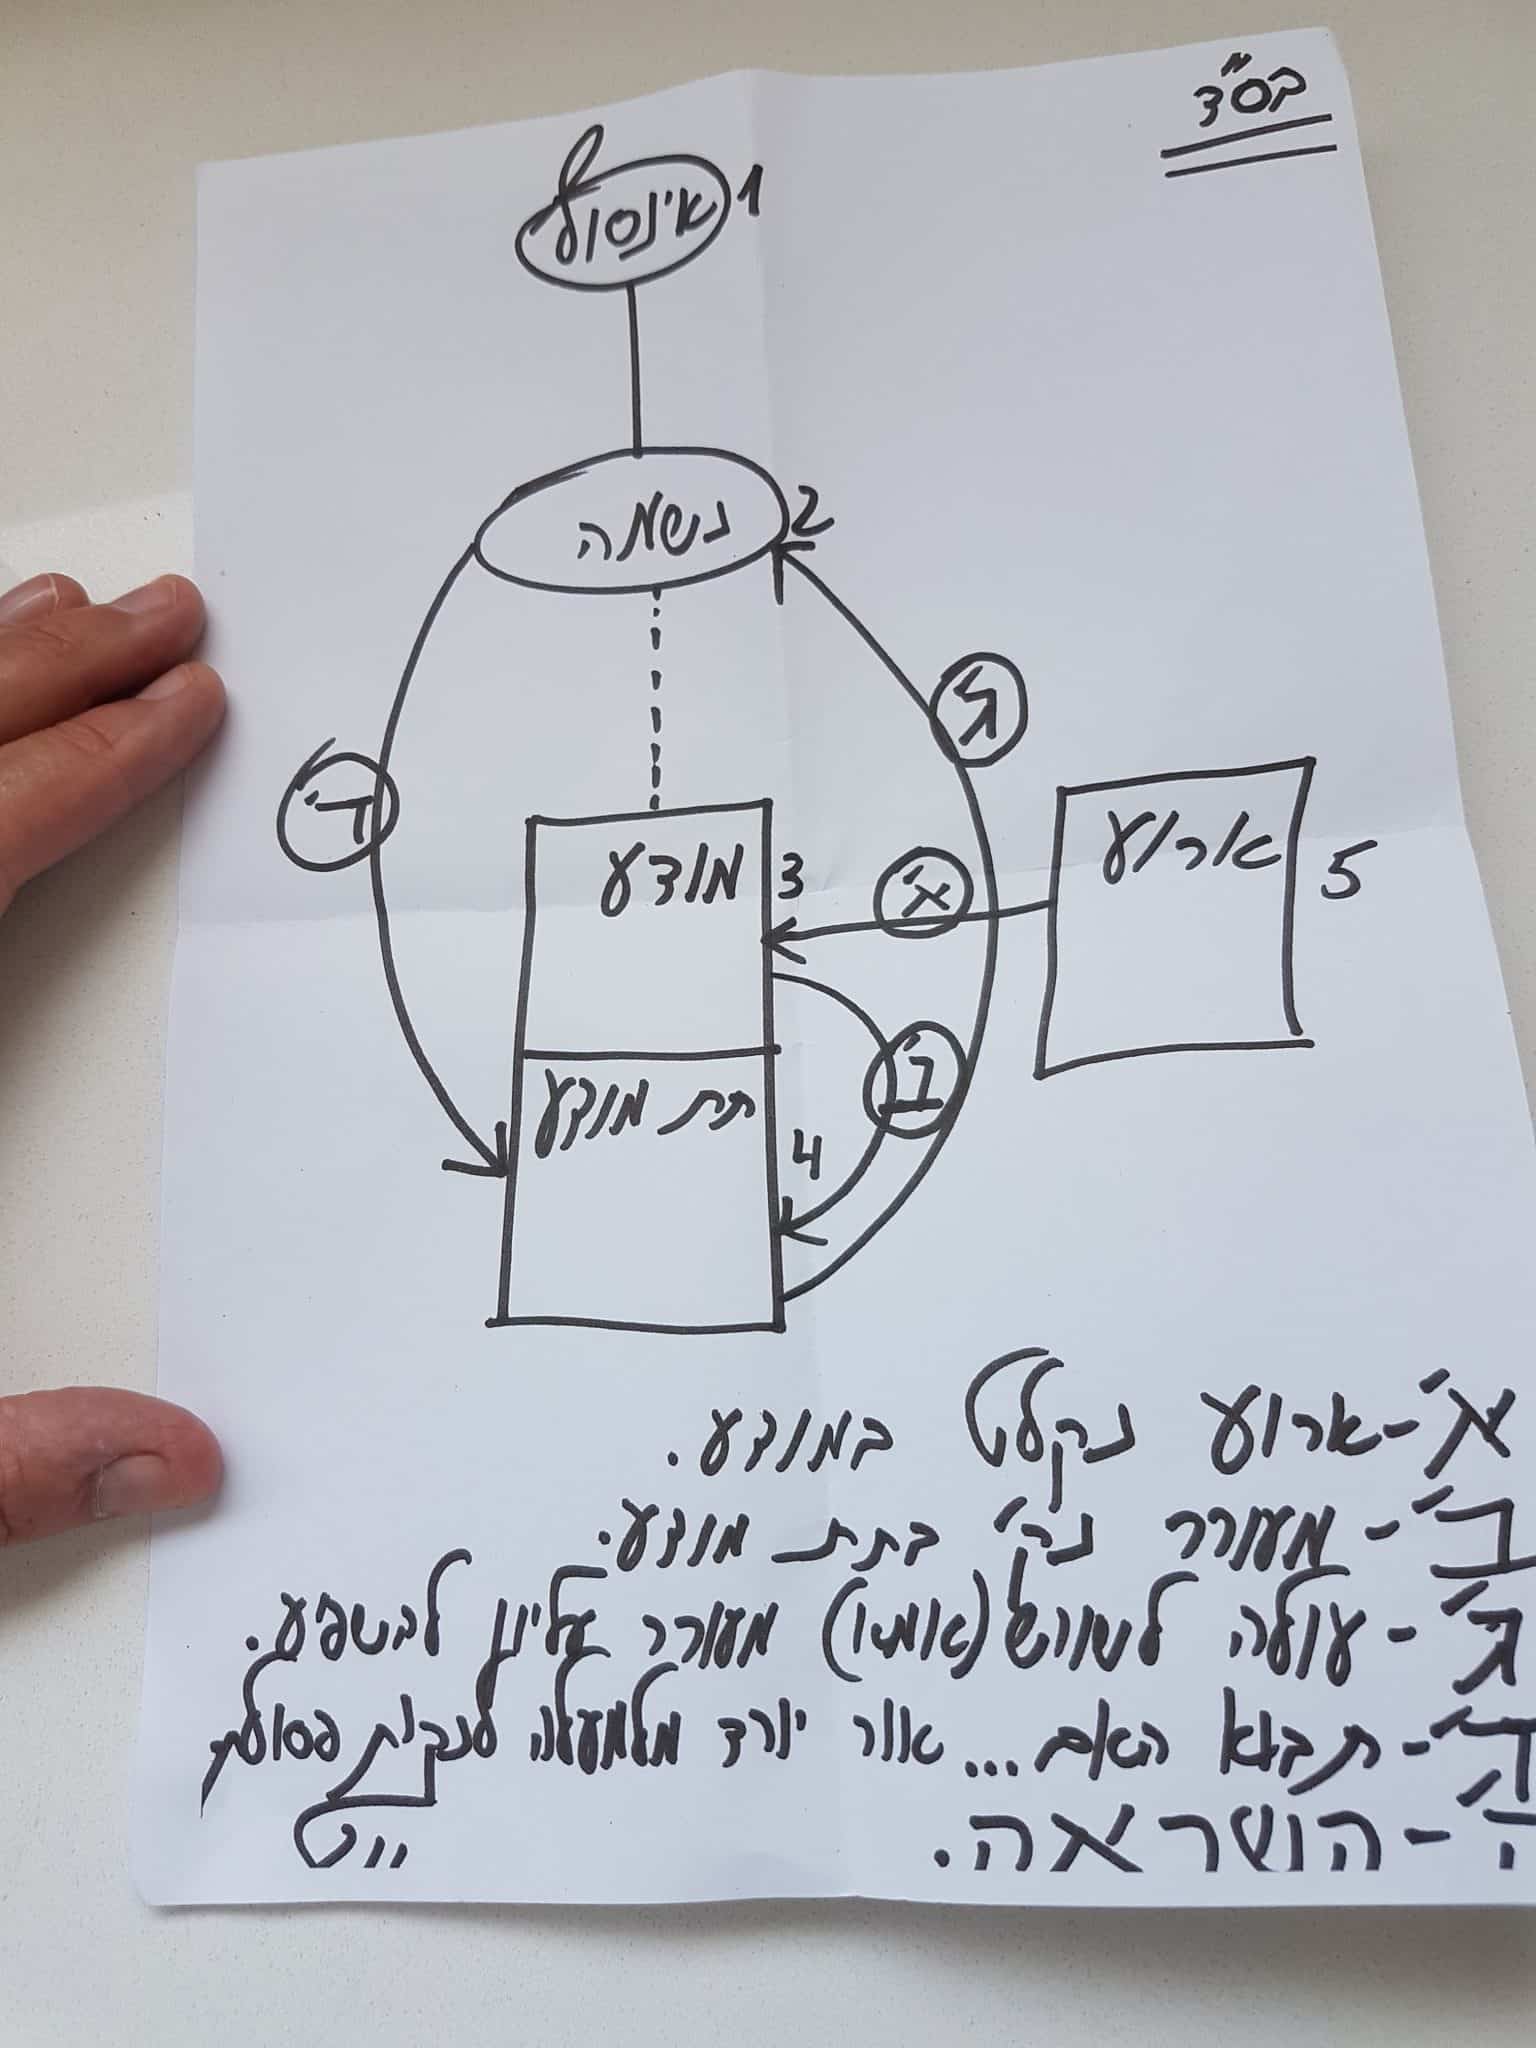 בס"ד
אינסוף 1
נשמה 2
ג'
ד'
מודע 3
א'
ארוע 5
ב'
תת מודע 4
א' - ארוע נקלט במודע.
ב' - מעורר נה"י בתת מודע.
ג' - עולה לשורש (אמא) מעורר עליון להשפיע.
ד' - תבוא האם... אור יורד מלמעלה לנקות פסולת
ה - השראה.